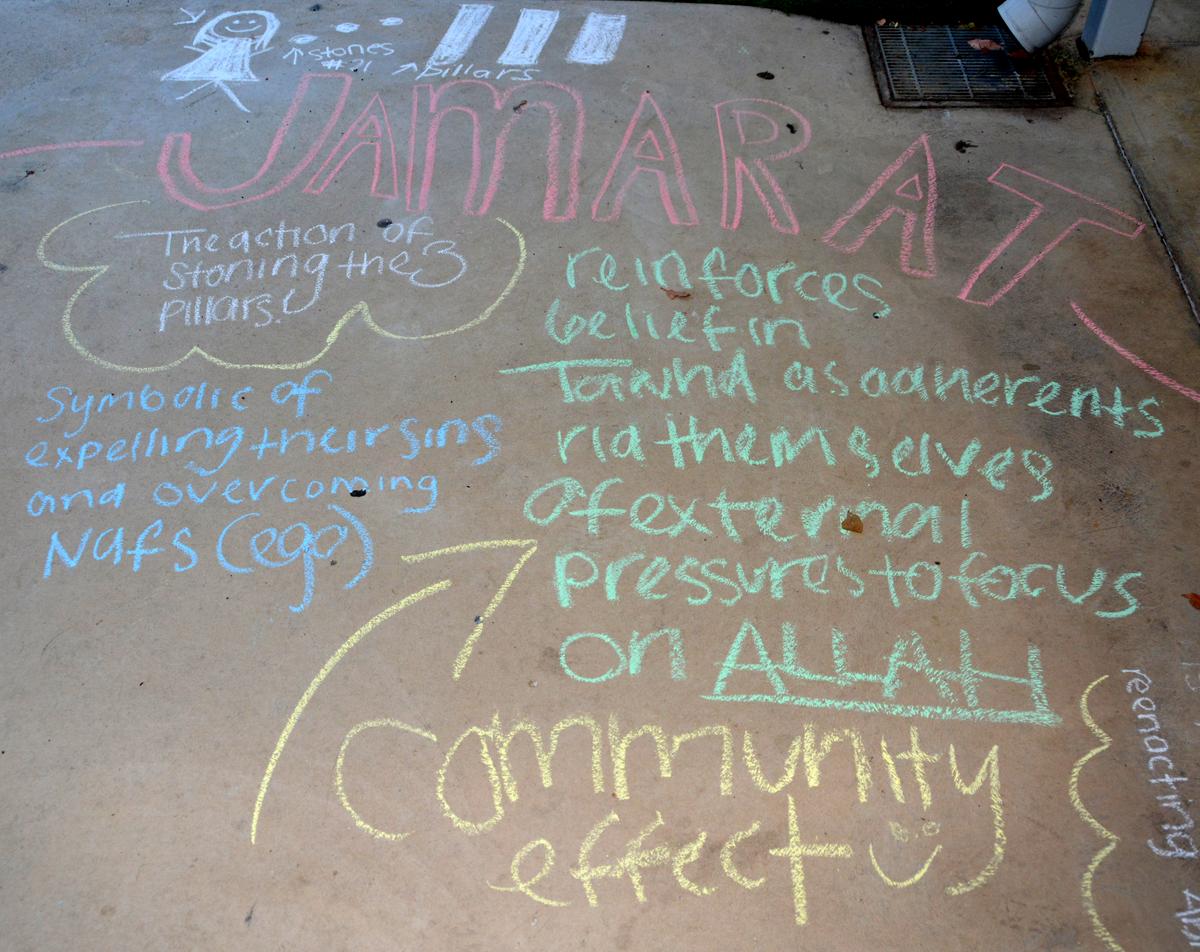 stones
#21
pillars
JAMARAT
The action of
stoning the 3
pillars.
Symbolic of
expelling their sins
and overcoming
Nafs (ego)
reinforces
belief in
Tawhid as adherents
rid themselves
of external
pressures to focus
on ALLAH
Community
effect
reenacting